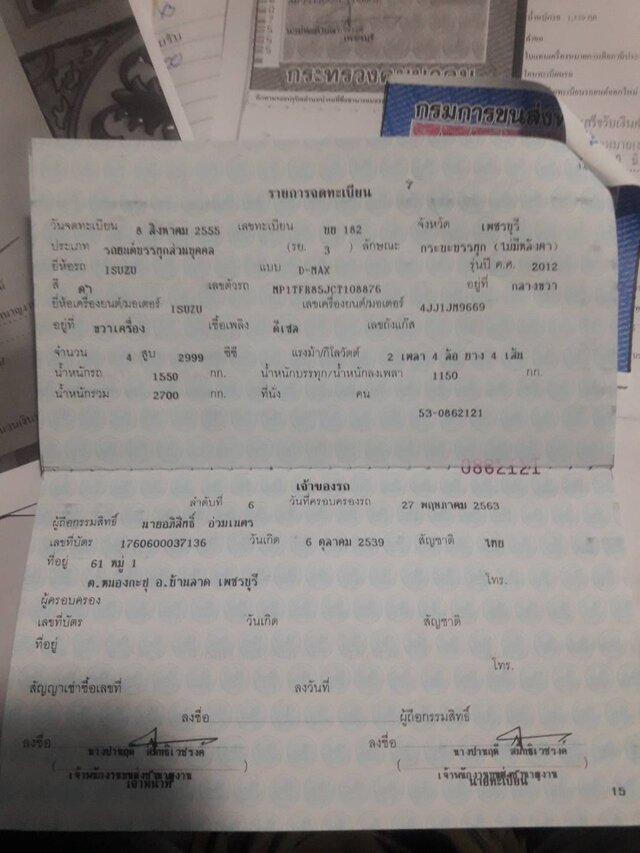 กระทรวงคมนาคม
กรมการขนส่งท
รายการจดทะเบียน
วันจดทะเบียน 8 สิงหาคม 2555 เลขทะเบียน บย 182 จังหวัด เพชรบุรี
ประเภท รถยนต์บรรทุกส่วนบุคคล (รย. 3 ) ลักษณะ กระบะบรรทุก (ไม่มีหลังคา)
ยี่ห้อรถ ISUZU แบบ D-MAX รุ่นปี ค.ศ. 2012
สี ดำ เลขตัวรถ MP1TFR85JCT108876 อยู่ที่ กลางขวา
ยี่ห้อเครื่องยนต์/มอเตอร์ ISUZU เลขเครื่องยนต์/มอเตอร์ 4JJ1JM9669
อยู่ที่ ขวาเครื่อง เชื้อเพลิง ดีเซล เลขถังแก๊ส
จำนวน 4 สูบ 2999 ซีซี แรงม้า/กิโลวัตต์ 2 เพลา 4 ล้อ ยาง 4 เส้น
น้ำหนักรถ 1550 กก. น้ำหนักบรรทุก/น้ำหนักลงเพลา 1150 กก.
น้ำหนักรวม 2700 กก. ที่นั่ง คน
53-0862121
0862121
เจ้าของรถ
ลำดับที่ 6 วันที่ครอบครองรถ 27 พฤษภาคม 2563
ผู้ถือกรรมสิทธิ์ นายอภิสิทธิ์ อ่วมเนตร
เลขที่บัตร 1760600037136 วันเกิด 6 ตุลาคม 2539 สัญชาติ ไทย
ที่อยู่ 61 หมู่ 1
ต.หนองกะปุ อ.บ้านลาด เพชรบุรี โทร.
ผู้ครอบครอง
เลขที่บัตร วันเกิด สัญชาติ
ที่อยู่
โทร.
สัญญาเช่าซื้อเลขที่ ลงวันที่
ลงชื่อ ผู้ถือกรรมสิทธิ์
ลงชื่อ ลงชื่อ
เจ้าหน้าที่ นายทะเบียน
15